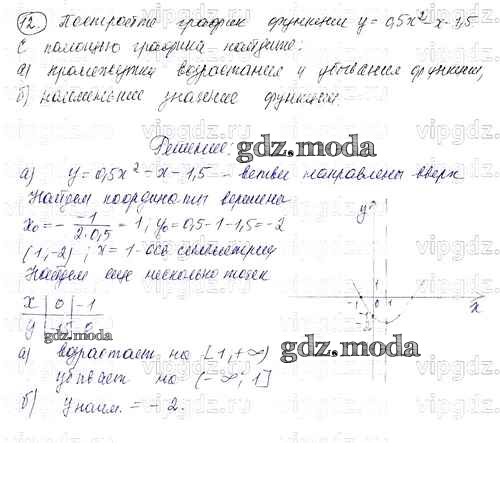 12. Постройте график функции y = 0,5x² - x - 1,5
С помощью графика найдите:
а) промежутки возрастания и убывания функции,
б) наименьшее значение функции.
Решение:
gdz.moda
а) y = 0,5x² - x - 1,5 - ветви направлены вверх
Найдем координаты вершины
x₀ = - -1/2·0,5 = 1; y₀ = 0,5 - 1 - 1,5 = -2
(1; -2); x = 1 - ось симметрии
Найдем еще несколько точек
x 0 -1
y -1,5 0
y
1
-1 0 1 x
-2
а) возрастает на [1; +∞)
gdz.moda
убывает на (-∞; 1]
б) y наим. = -2.
vipgdz.com